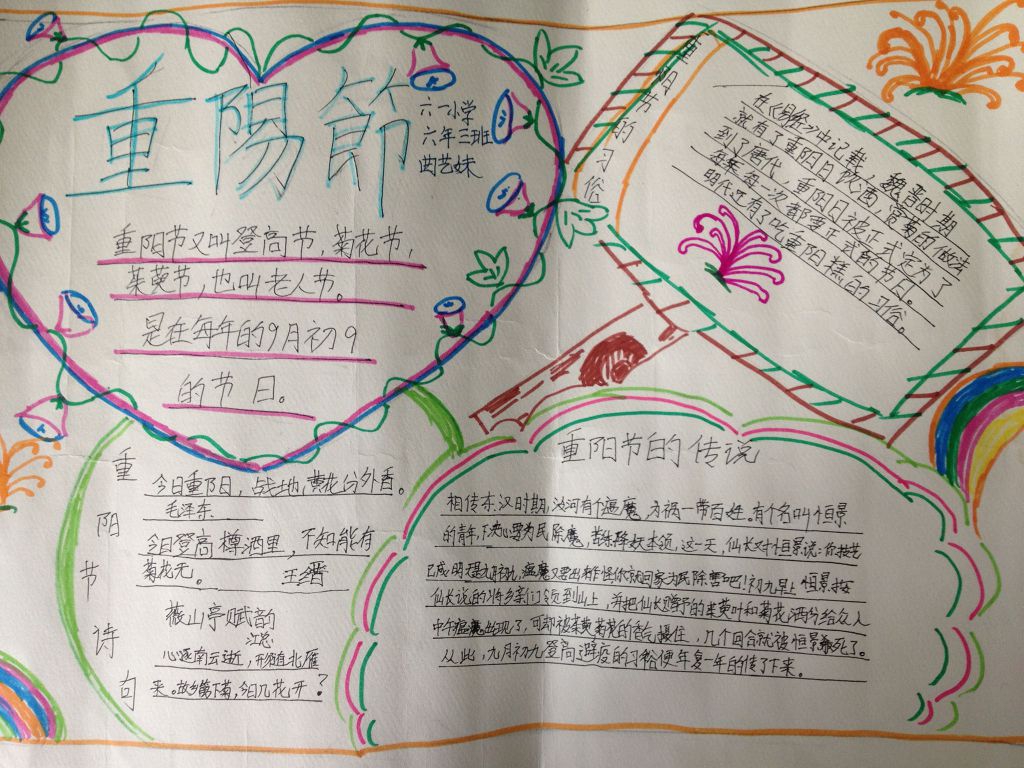 重陽節
六一小学
六年三班
曲艺妹
重阳节又叫登高节，菊花节，
茱萸节，也叫老人节。
是在每年的9月初9
的节日。
重阳节的习俗
在《易经》中记载，魏晋时期
就有了重阳日饮酒，赏菊的做法
到了唐代，重阳日被正式定为了
每年每一次都要正式的节日。
明代还有了吃重阳糕的习俗。
重阳节诗句
今日重阳日，战地黄花分外香。
毛泽东
今日登高樽酒里，不知能有
菊花无。 王缙
薇山亭赋韵
江总
心逐南云逝，形随北雁
来。故乡篱下菊，今日几花开？
重阳节的传说
相传东汉时期，汝河有个瘟魔，为祸一带百姓。有个名叫恒景
的青年，下决心要为民除魔，苦练降妖本领，这一天，仙长对恒景说：你技艺
已成，明天是九月初九，瘟魔又要出来作怪你就回家为民除害吧！初九早上恒景按
仙长说的将乡亲们领到山上，并把仙长赠予的茱萸叶和菊花酒分给众人
中午瘟魔出现了，可却被茱萸菊花的香气慑住，几个回合就被恒景杀死了。
从此，九月初九登高避疫的习俗便年复一年的传了下来。